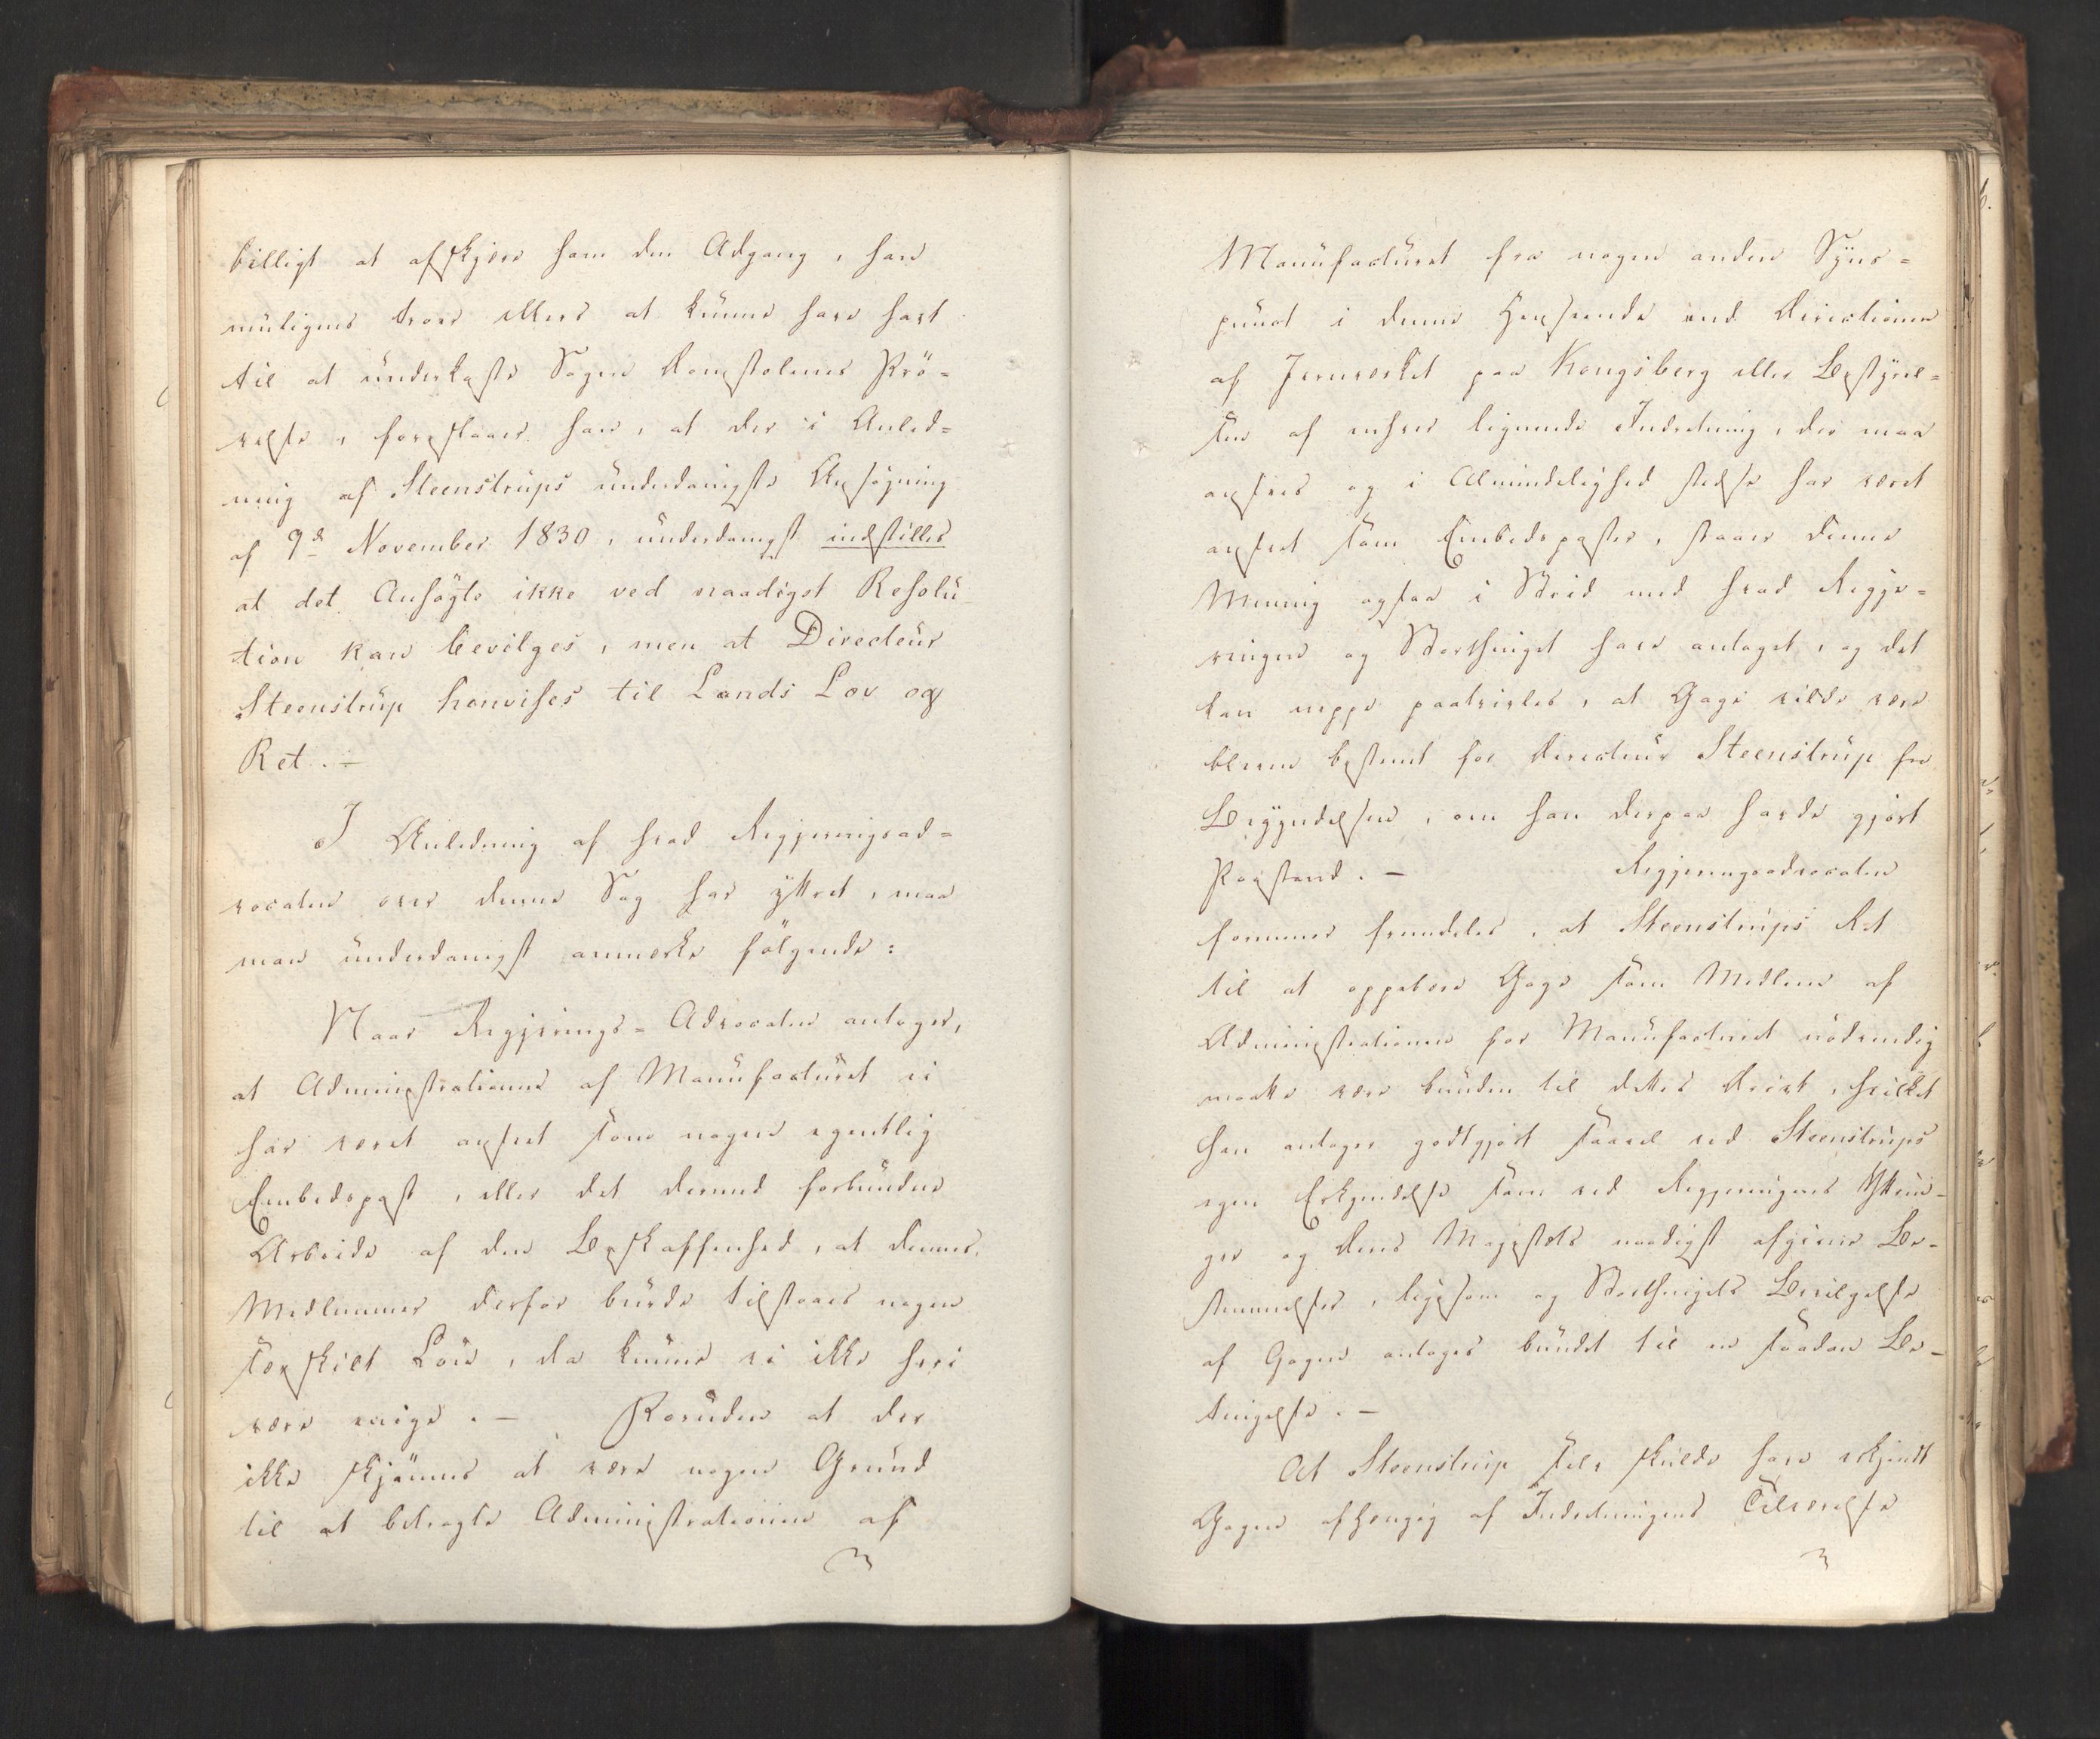 billigt at afskjære ham den Adgang, han
muligens troer ellers at kunne have havt
til at underkaste Sagen Domstolenes Prö-
velse, foreslaaer han, at der i Anled-
ning af Steenstrups underdanigste Ansögning
af 9de November 1830, underdanigst indstilles
at det Ansögte ikke ved naadigst Resolu
tion kan bevilges, men at Directeur
Steenstrup henvises til Lands Lov og
Ret. -
I Anledning af hvad Regjeringsad-
vocaten over denne Sag har yttret, maa
man underdanigst anmerke fölgende:
Naar Regjerings-Advocaten antager,
at Administrationen af Manufacturet ei
har været anseet som nogen egentlig
Embedspost, eller det dermed forbundne
Arbeide af den Beskaffenhed, at dennes
Medlemmer derfor burde tilstaaes nogen
særskilt Lön, da kunne vi ikke heri
være enige. - Foruden at der
ikke skjönnes at være nogen Grund
til at betragte Administrationen af
Manufacturet fra nogen anden Syns-
punct i denne Henseende end Directionen
af Jernverket paa Kongsberg eller Bestyrel-
sen af enhver lignende Indretning, der maa
ansees og i Almindelighed stedse har været
anseet som Embedsposter, staaer denne
Mening ogsaa i Strid med hvad Regje-
ringen og Storthinget have antaget, og det
kan neppe paatvivles, at Gage vilde være
bleven bestemt for Directeur Steenstrup fra
Begyndelsen, om han derpaa havde gjort
Paastand. - Regjeringsadvocaten
formener fremdeles, at Steenstrups Ret
til at oppebære Gage som Medlem af
Administrationen for Manufacturet nödvendig
maatte være bunden til dettes Drivt, hvilket
han antager godtgjort saavel ved Steenstrups
egen Erkjendelse som ved Regjeringens Yttrin-
ger og Deres Majestæts naadigst afgivne Be-
stemmelser, ligesom og Storthingets Bevilgelse
af Gagen antages bundet til en saadan Be-
tingelse. -
At Steenstrup selv skulde have erkjendt
Gagen afhængig af Indretningens Tilværelse